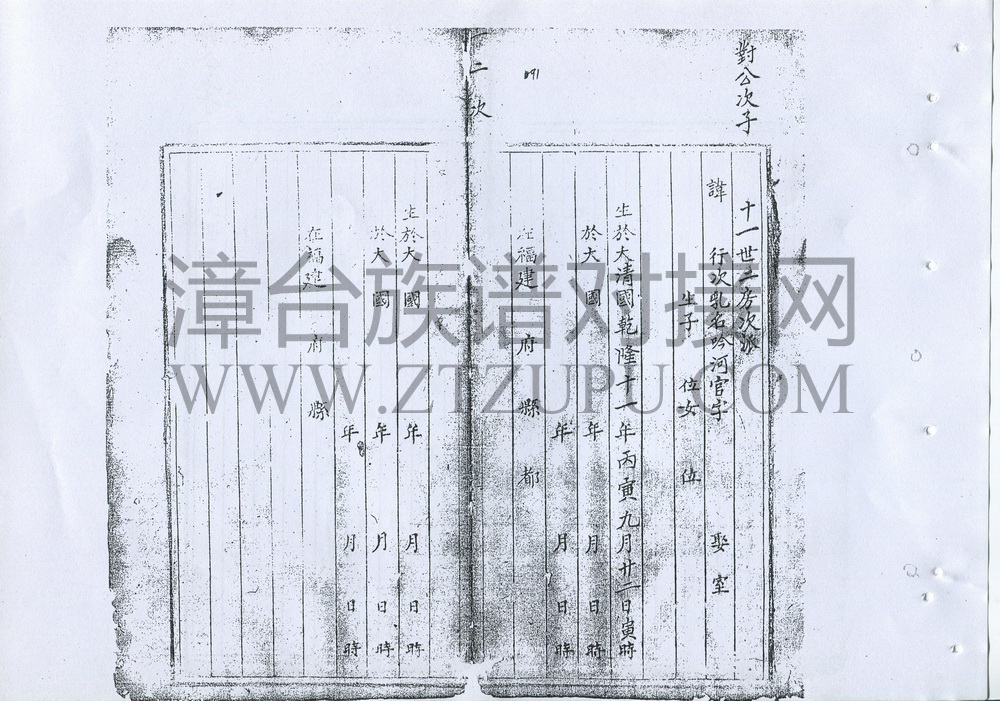 對公次子
十一世二房次派
諱 行次乳名吟河官字 娶室
生子 位女 位
生於大清國乾隆十一年丙寅九月廿一日寅時
於大 國 年 月 日 時
年 月 日 時
在福建 府 縣 都
091
二次
生於大 國 年 月 日 時
於大 國 年 月 日 時
年 月 日 時
在福建 府 縣
漳台族谱对接网
WWW.ZTZUPU.COM